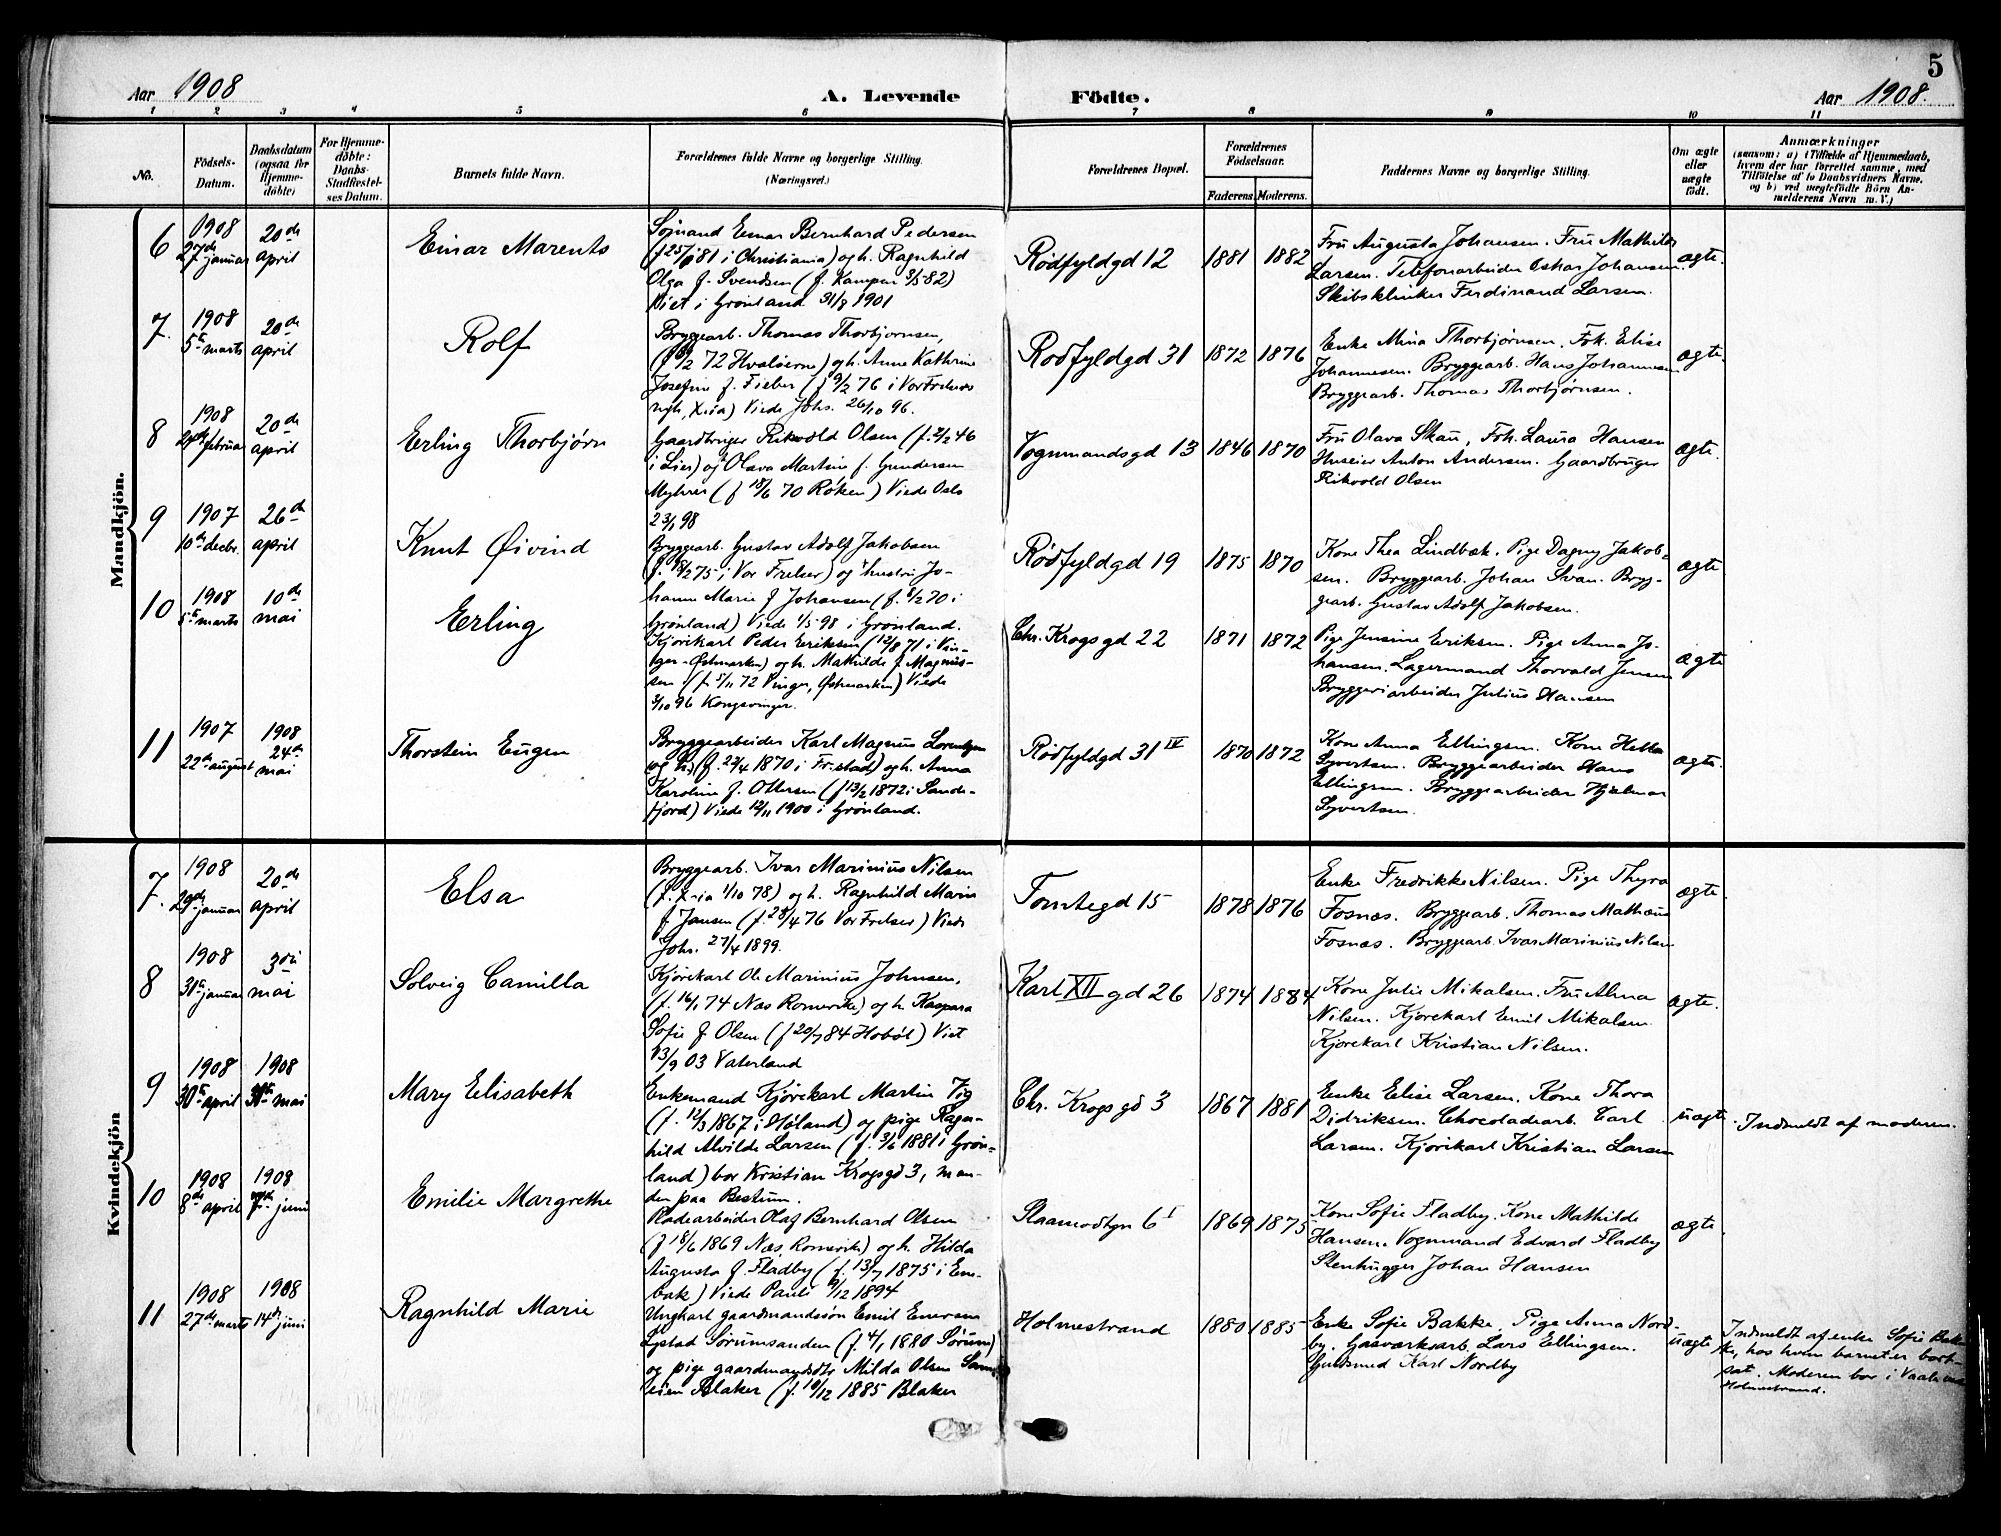 5
Aar 1908
A. Levende Födte.
Aar 1908.
1 2 3 4 5 6 7 8 9 10 11
No.
Födsels-
Datum.
Daabsdatum
(ogsaa for
Hjemme-
döbte)
For Hjemme-
döbte:
Daabs-
Stadfæstel-
ses Datum.
Barnets fulde Navn.
Forældrenes fulde Navne og borgerlige Stilling.
(Næringsvei.)
Forældrenes Bopæl.
Forældrenes
Födselsaar.
Faderens. Moderens.
Faddernes Navne og borgerlige Stilling.
Om ægte
eller
uægte
födt.
Anmærkninger
(saasom: a) i Tilfælde af Hjemmedaab,
hvem der har forrettet samme, med
Tilföielse af to Daabsvidners Navne.
og b) ved uægtefödte Börn An-
melderens Navn m. V.)
Mandkjön.
6
1908
27de januar
20de
april
Einar Marents
Sømand Einar Bernhard Pedersen
(f 25/ 81 i Christiania) og h. Ragnhild
Olga f. Svendsen (f. Kampen 3/5 82)
Viet i Grønland 31/8 1901
Rødfyldgd 12
1881
1882
Fru Augusta Johansen. Fru Mathilda
Larsen. Telefonarbeider Oskar Johansen
Skibsklinker Ferdinand Larsen.
ægte.
7.
1908
5te marts
20de
april
Rolf
Bryggearb. Thomas Thorbjørnsen,
72 Hvaløerne) og h. Anne Kathrine
Josefine f. Fieber (f 9/2 76 i Vor Frelsers
mgh, X.ia) Viede Johs. 26/10 96.
Rødfyldgd 31
1872
1876
Enke Mina Thorbjørnsen. Frk. Elise
Johannesen. Bryggearb. Hans Johannesen
Bryggearb. Thomas Thorbjørnsen.
ægte
8
1908
24de februar
20de
april
Erling Thorbjørn
Gaardbruger Rikvold Olsen (f. 2/2 46
i Lier) og Olava Martine f. Gundersen
Myhrer (f 18/6 70 Røken) Viede Oslo
23/1 98
Vognmandsgd 13
1846
1870
Fru Olava Skau, Frk. Laura Hansen
Huseier Anton Andersen. Gaardbruger
Rikvold Olsen
ægte.
9
1907
10de decbr.
26de
april
Knut Øivind
Bryggearb. Gustav Adolf Jakobsen
(f. 18/2 75 i Vor Frelser) og hustru Jo-
hanne Marie f Johansen (f. 5/2 70 i
Grønland) Viede 1/5 98 i Grønland.
Rødfyldgd 19
1875
1870
Kone Thea Lindbæk. Pige Dagny Jakob-
sen. Bryggearb. Johan Svan. Bryg-
gearb. Gustav Adolf Jakobsen.
ægte
10
1908
5te marts
10de
mai
Erling
Kjørekarl Peder Eriksen (12/8 71 i Vin-
ger-Østmarken) og h. Mathilde f Magnus-
sen (f. 5/11 72 Vinger, Østmarken) Viede
3/10 96 Kongsvinger.
Chr. Krogsgd 22
1871
1872
Pige Jensine Eriksen. Pige Anna Jo-
hansen. Lagermand Thorvald Jensen
Bryggeriarbeider Julius Hansen
ægte
11
1907
22de august
1908
24de
mai
Thorstein Eugen
Bryggearbeider Karl Magnus Lorentzen
(f. 23/4 1870 i Fr.stad) og h. Anna
Karoline f. Ottersen (f 13/2 1872 i Sande-
fjord) Viede 12/11 1900 i Grønland.
Rødfyldgd 31 IV
1870
1872
Kone Anna Ellingsen. Kone Helba
Syvertsen. Bryggearbeider Hans
Ellingsen. Bryggearbeider Hjalmar
Syvertsen.
ægte.
Kvindekjön
7.
1908
29de januar
20de
april
Elsa
Bryggearb. Ivar Marinius Nilsen
(f. X-ia 1/10 78) og h. Ragnhild Marie
f. Jansen (f. 28/4 76 Vor Frelser) Viede
Johs. 27/4 1899.
Tomtegd 15
1878
1876
Enke Fredrikke Nilsen. Pige Thyra
Fosnæs. Bryggearb. Thomas Mathæus
Fosnæs. Bryggearb. Ivar Marinius Nilsen
ægte.
8
1908
31te januar
3die
mai
Solveig Camilla
Kjørekarl Ole Marinius Johnsen,
(f. 16/1 74 Næs Romerike) og h. Kaspara
Sofie f Olsen (f 20/7 84 Hobøl) Viet
13/9 03 Vaterland
Karl XII gd 26
1874
1884
Kone Julie Mikalsen. Fru Alma
Nilsen. Kjørekarl Emil Mikalsen
Kjørekarl Kristian Nilsen.
ægte.
9
1908
30te april
1908
31te mai
Mary Elisabeth
Enkemand Kjørekarl Martin Vig
(f. 12/3 1867 i Høland) og pige Ragn-
hild Alvilde Larsen (f. 3/6 1881 i Grøn-
land) bor Kristian Krogsgd 3, man-
den paa Bestum.
Chr. Krogsgd 3
1867
1881
Enke Elise Larsen. Kone Thora
Didriksen. Chocoladearb. Carl
Larsen. Kjørekarl Kristian Larsen
uægte.
Indmeldt af moderen.
10
1908
8de april
1908
7de juni
Emilie Margrethe
Pladearbeider Olaf Bernhard Olsen
(f 18/6 1869 Næs, Romerike) og h. Hilda
Augusta f. Fladby (f. 13/7 1875 i Ene-
bak) Viede Pauli 9/12 1894
1869
1875
Kone Sofie Fladby. Kone Mathilde
Hansen. Vognmand Edvard Fladby
Stenhugger Johan Hansen
ægte
11
1908
27de marts
1908
14de juni
Ragnhild Marie
Ungkarl gaardmandssøn Emil Enersen
Lystad Sørumsanden (f. 4/1 1880 Sørum)
og pige gaardmandsdtr Milda Olsen
eien Blaker (f. 10/12 1885 Blaker
Holmestrand
1880
1885
Enke Sofie Bakke. Pige Anna Nord-
by. Gasværksarb. Lars Ellingsen.
Guldsmed Karl Nordby
uægte
Indmeldt af enke Sofie Bak-
ke, hos hvem barnet er bort-
sat. Moderen bor i Vaale ved
Holmestrand.